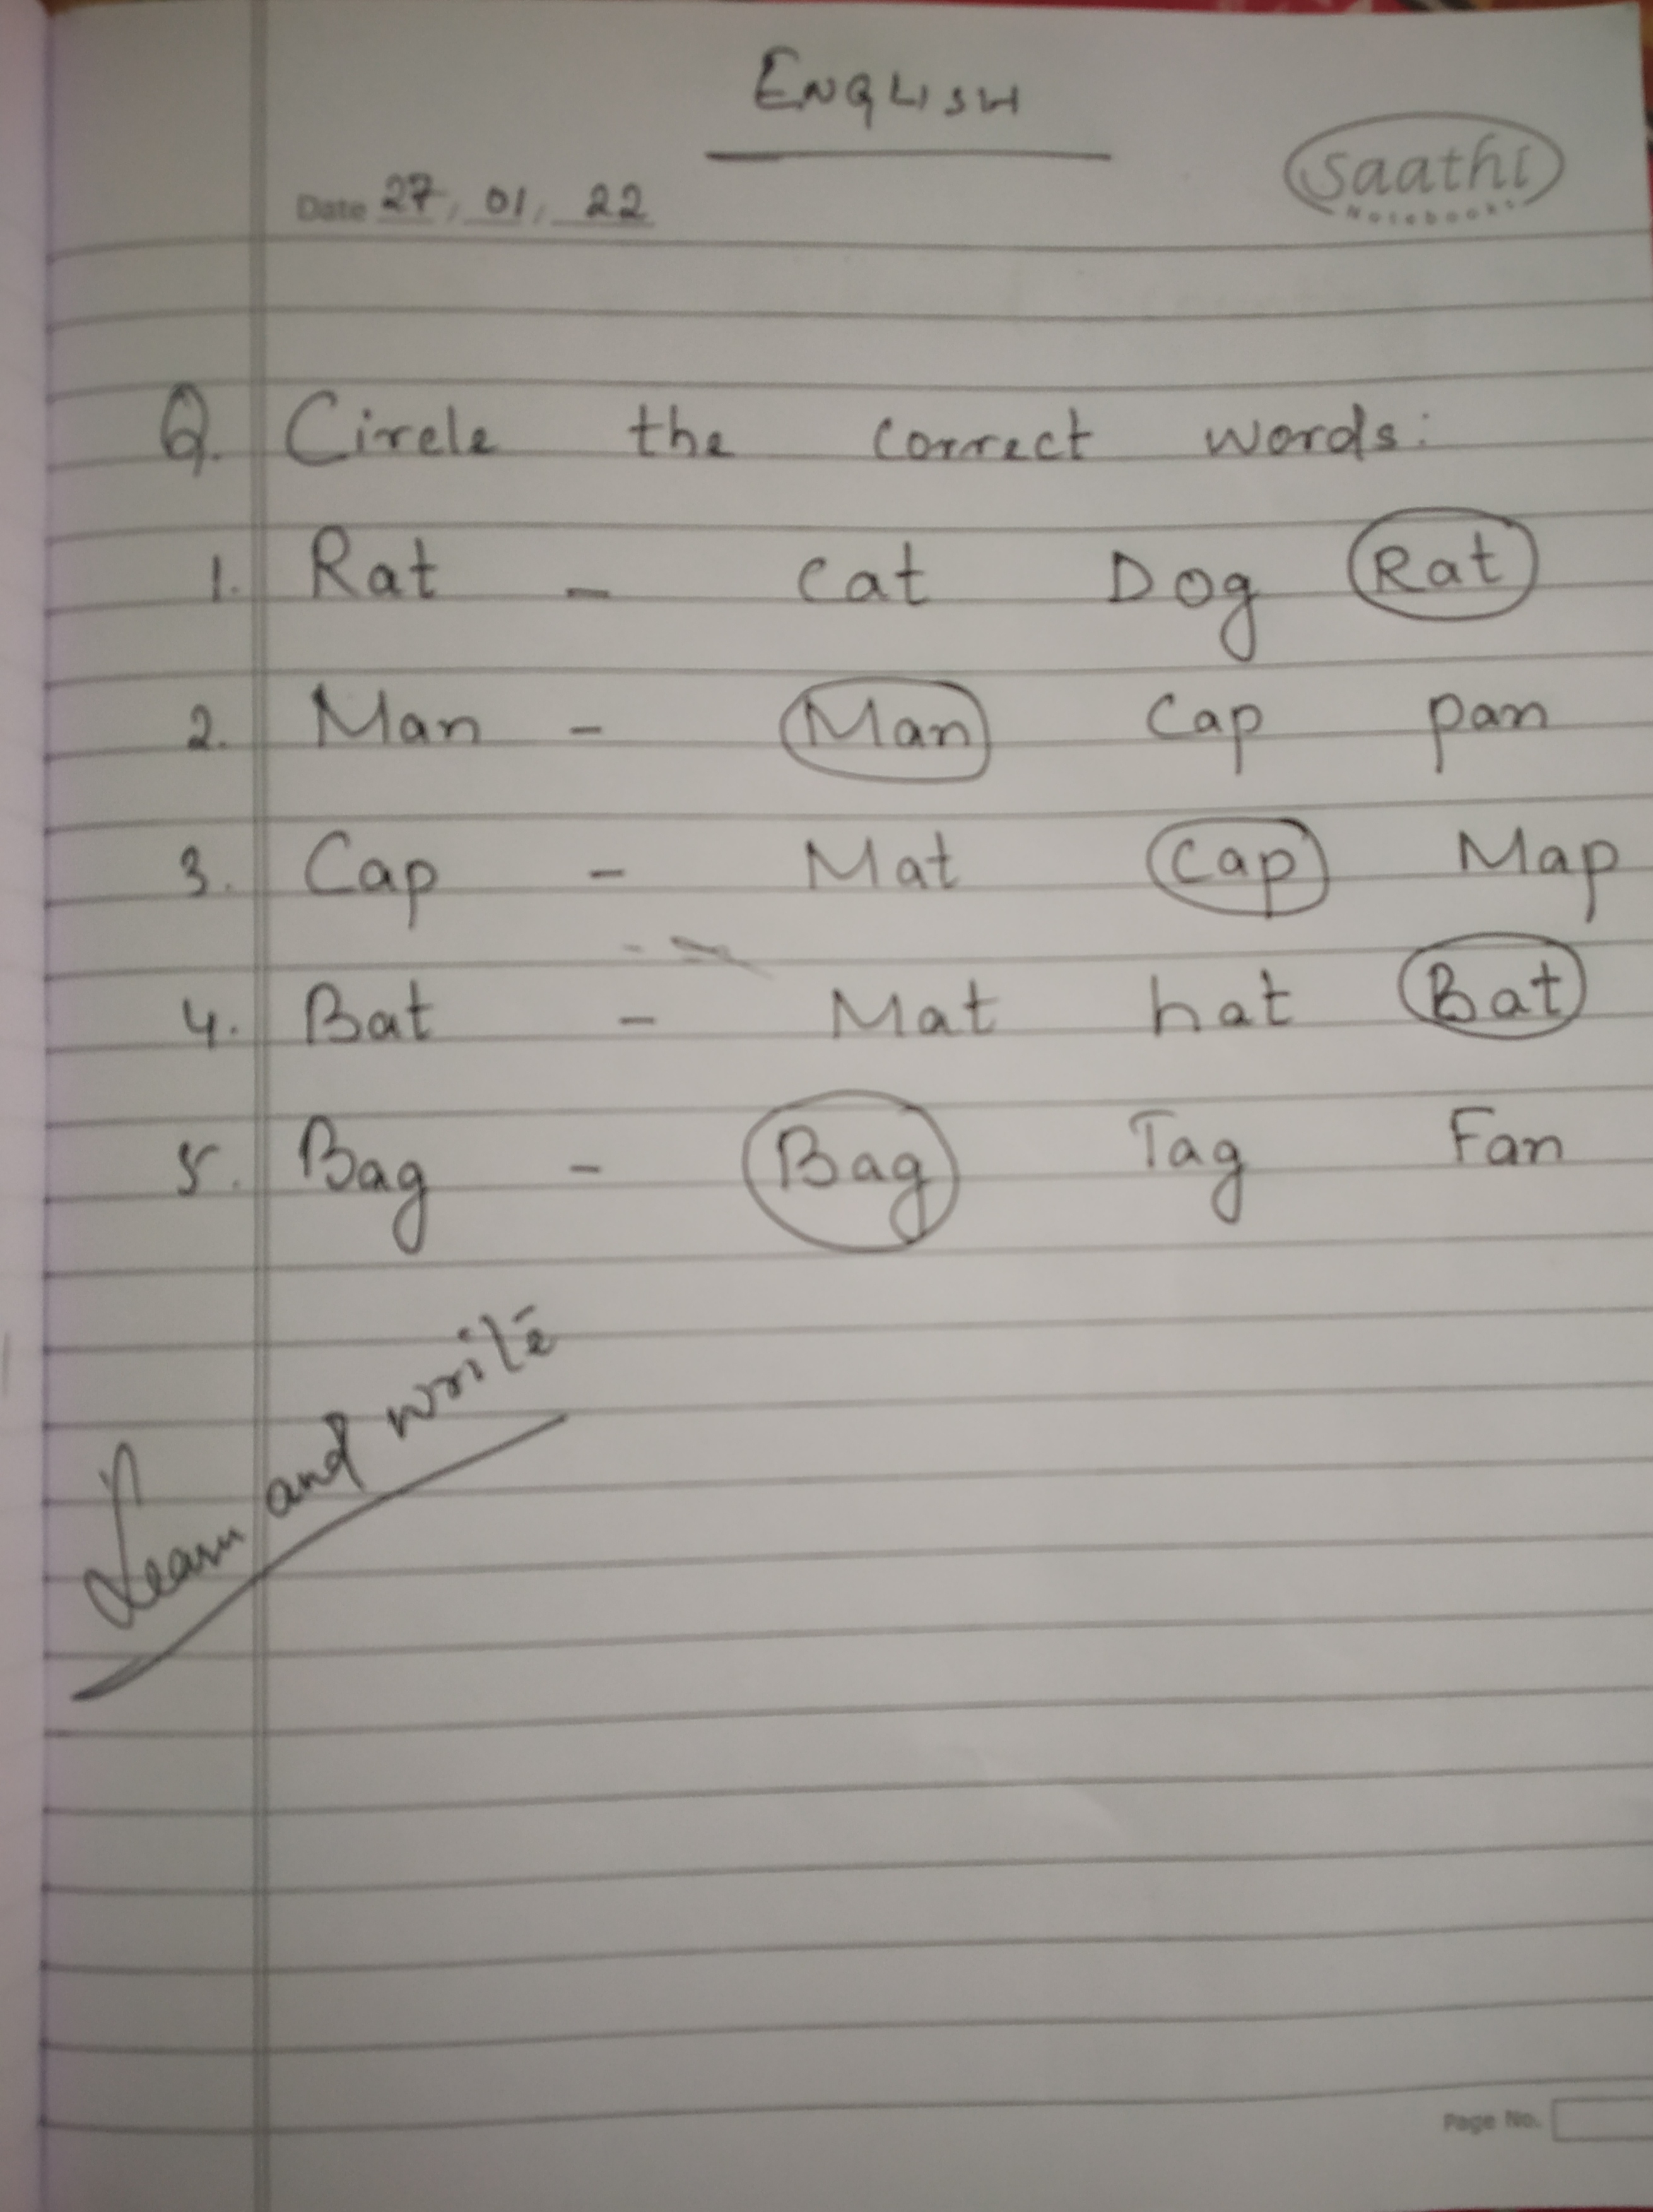 ENGLISH
saathi
Notebooks
Date 27, 01, 22
Q. Circle the correct words:
1. Rat - Cat Dog Rat
2. Man - Man Cap pan
3. Cap - Mat Cap Map
4. Bat - Mat hat Bat
5. Bag - Bag Tag Fan
Learn and write
Page No.